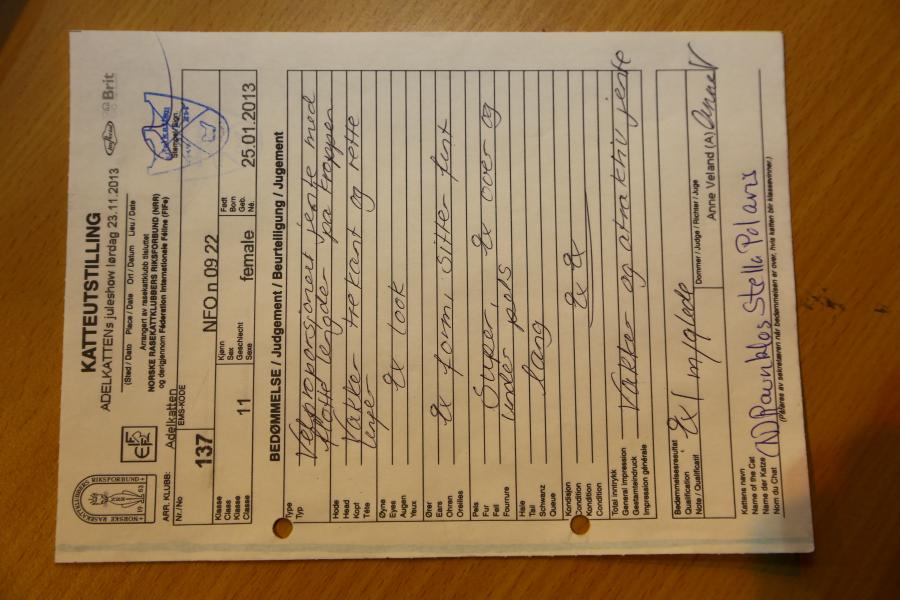 KATTEUTSTILLING
ADELKATTENs juleshow lørdag 23.11.2013
(Sted / Dato Place / Date Ort / Datum Lieu / Date)
Arrangert av rasekattklubb tilsluttet
NORSKE RASEKATTKLUBBERS RIKSFORBUND (NRR)
og derigjennom Féderation Internationale Féline (FIFe)
Brit
Stempel/Sign
NORSKE RASEKATTKLUBBERS RIKSFORBUND
1963
FIFe
ARR. KLUBB: Adelkatten
Nr./No 137
EMS-KODE NFO n 09 22
Klasse
Class
Klasse
Classe
11
Kjønn
Sex
Geschlecht
Sexe
female
Født
Born
Geb.
Né.
25.01.2013
BEDØMMELSE / Judgement / Beurteiligung / Jugement
Type
Typ
Velproporsjonert jente med
flott lengde på kroppen
Hode
Head
Kopf
Tête
Vakker trekant og rette
linjer
Øyne
Eyes
Augen
Yeux
Ex look
Ører
Ears
Ohren
Oreilles
Ex form sitter fint
Pels
Fur
Fell
Fourrure
Super Ex over og
under pels
Hale
Tail
Schwanz
Queue
lang
Kondisjon
Condition
Kondition
Condition
Ex Ex
Total inntrykk
General impression
Gestamteindruck
Impression générale
Vakker og atraktiv jente
Bedømmelsesresultat
Qualification
Qualität
Note / Qualificatif
Ex 1 m/glede
Dommer / Judge / Richter / Juge
Anne Veland (A)
Kattens navn
Name of the Cat
Name der Katze
Nom du Chat
(N) Ravnklos Stella Polaris
(Påføres av sekretæren når bedømmelsen er over, hvis katten blir klassevinner.)